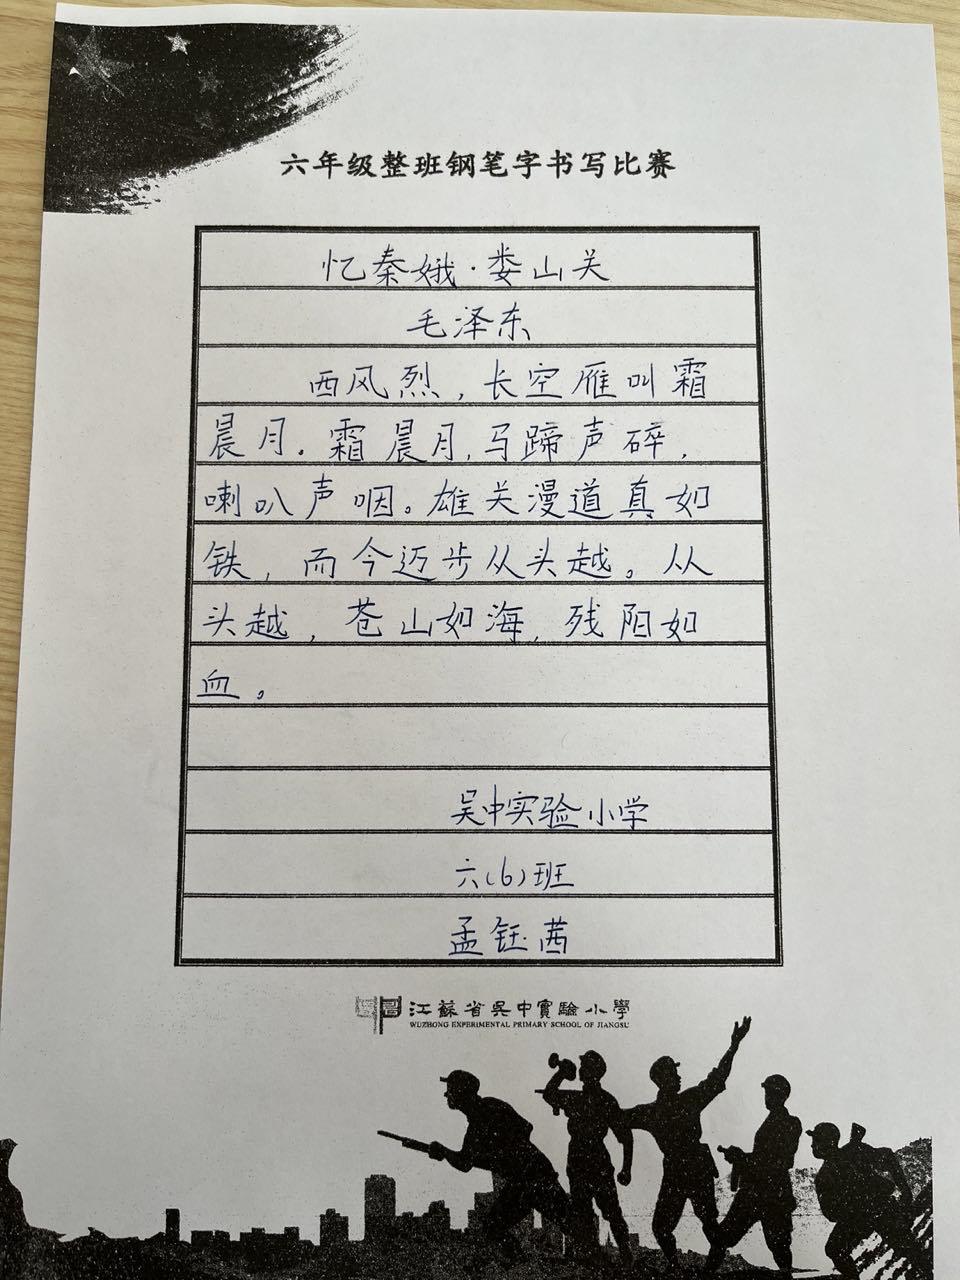 六年级整班钢笔字书写比赛
忆秦娥·娄山关
毛泽东
西风烈，长空雁叫霜
晨月。霜晨月，马蹄声碎，
喇叭声咽。雄关漫道真如
铁，而今迈步从头越。从
头越，苍山如海，残阳如
血。
吴中实验小学
六(6)班
孟钰茜
江蘇省吴中實驗小學
WUZHONG EXPERIMENTAL PRIMARY SCHOOL OF JIANGSU